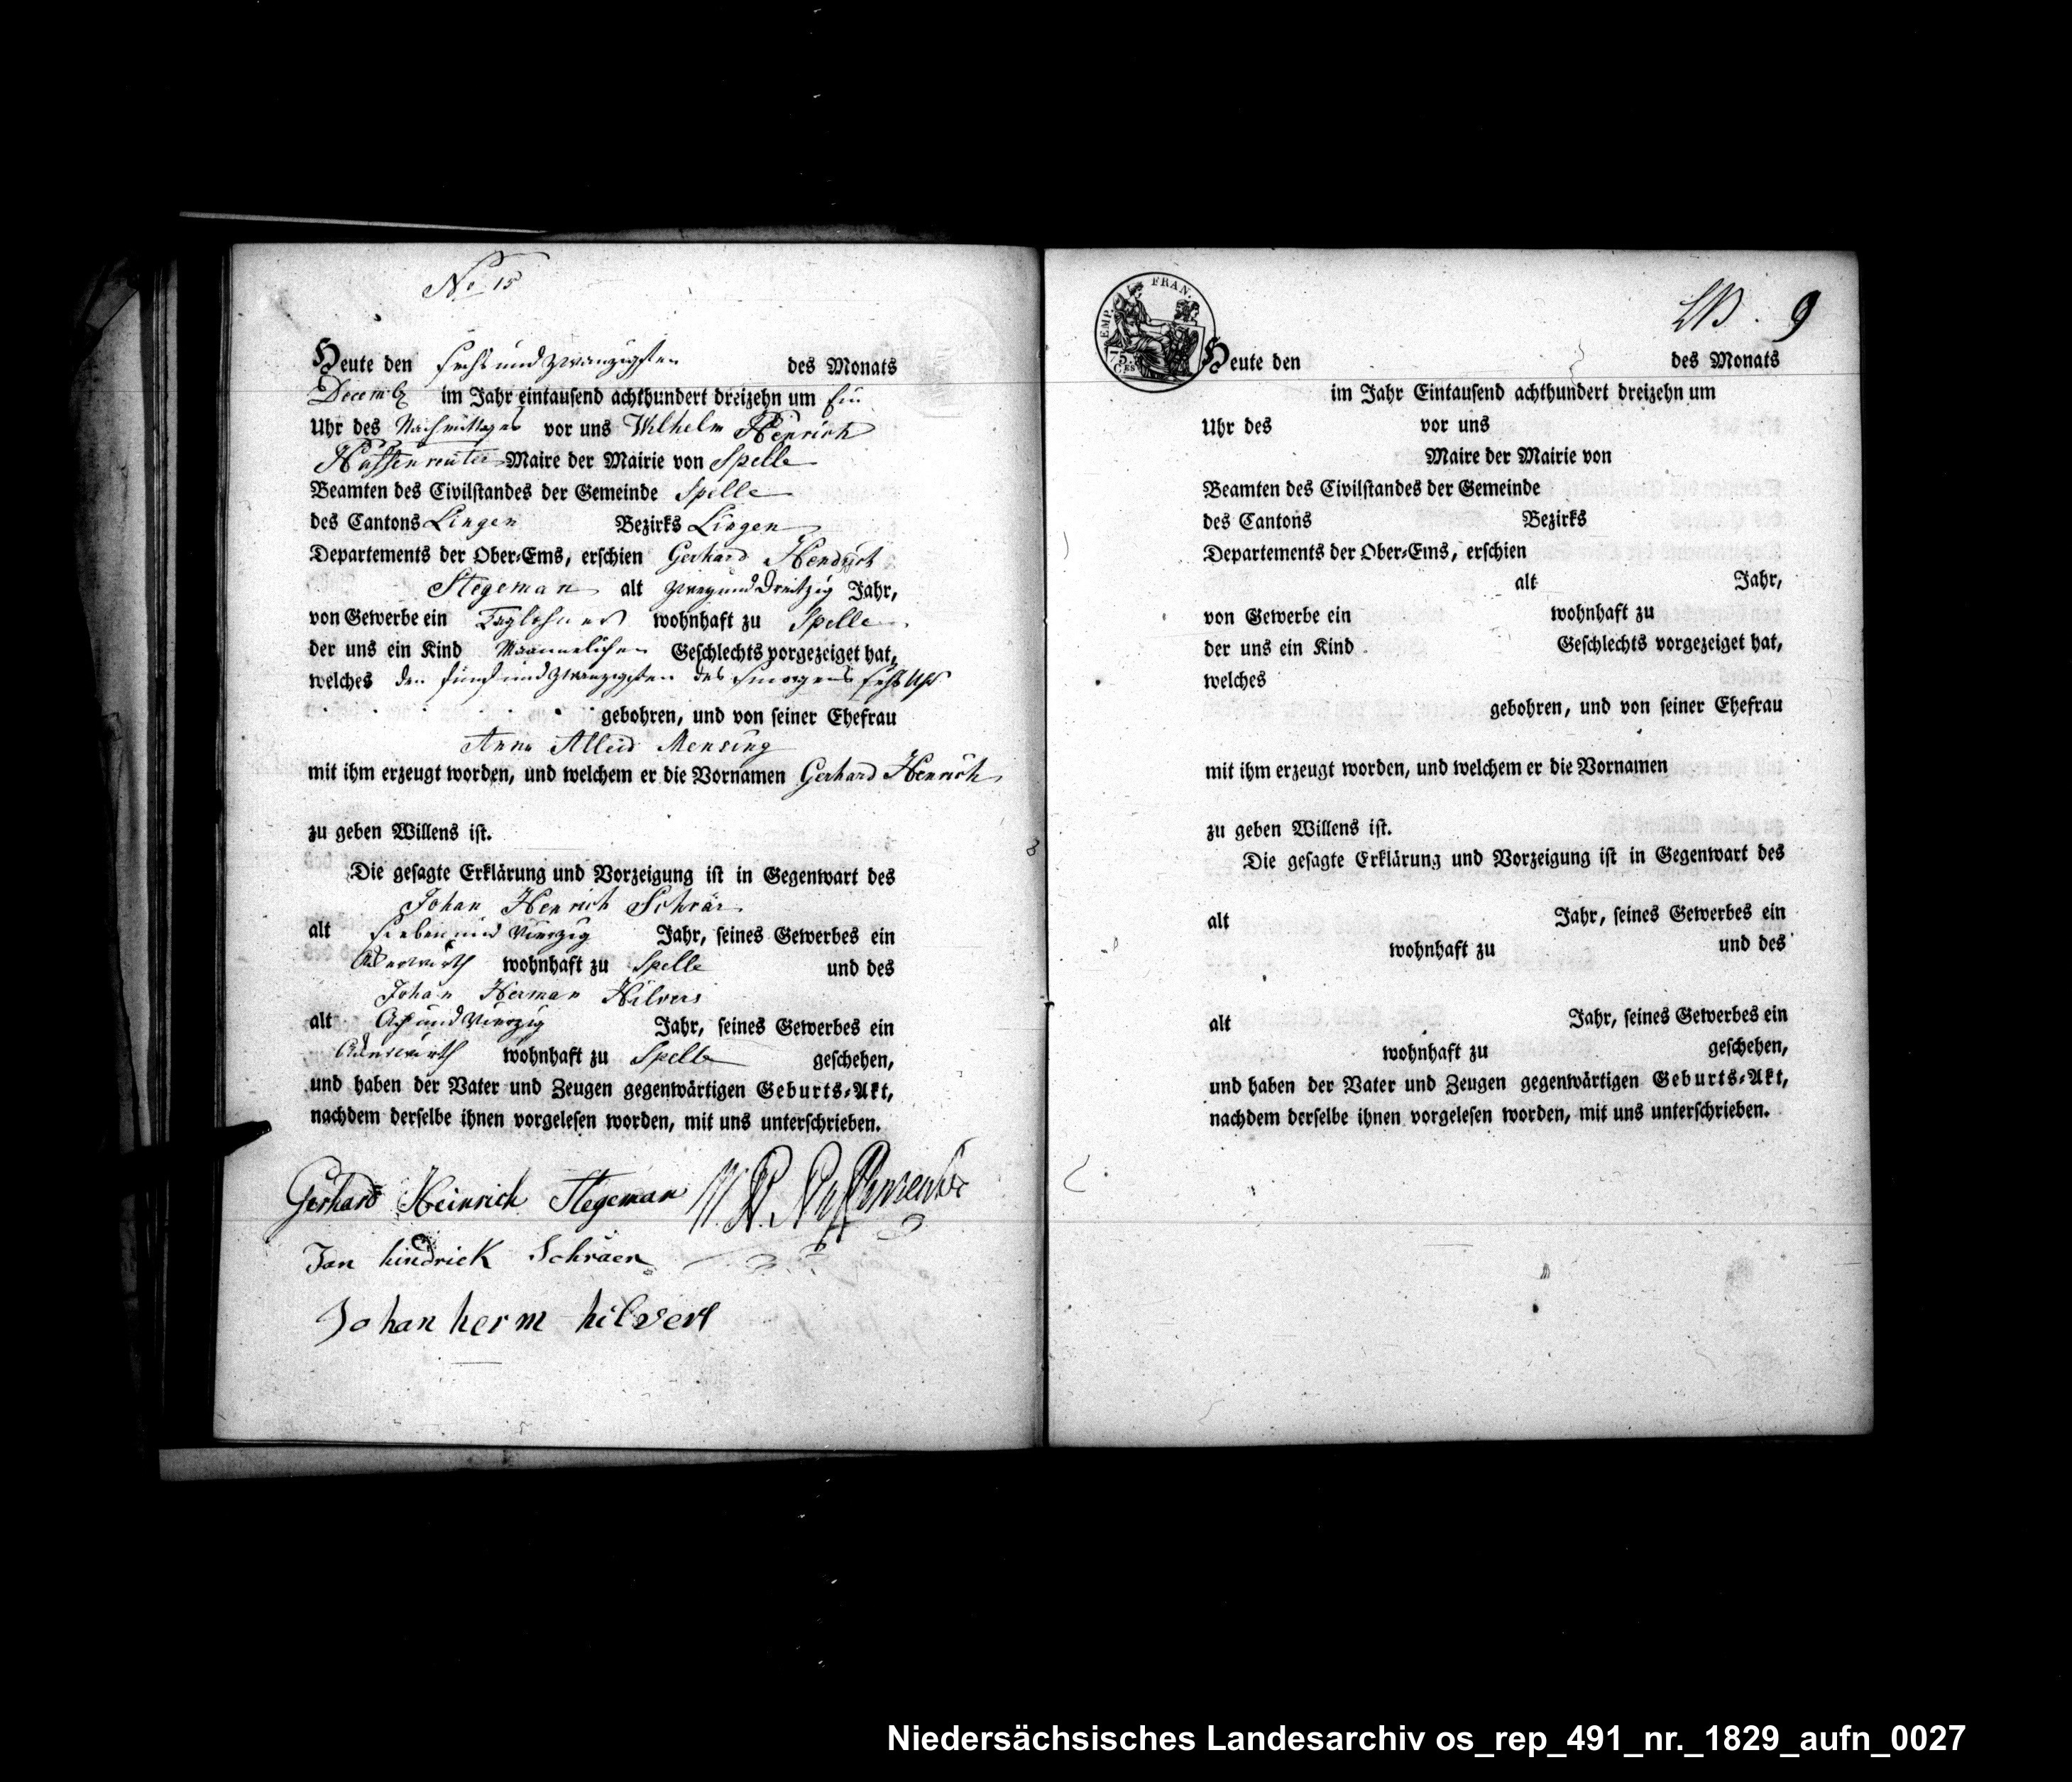 No 15
Heute den sechs und zwanzigsten des Monats
Decemb im Jahr eintausend achthundert dreizehn um Ein
Uhr des Nachmittages vor uns Wilhelm Henrich
Maire der Mairie von Spelle
Beamten des Civilstandes der Gemeinde Spelle
des Cantons Lingen Bezirks Lingen
Departements der Ober-Ems, erschien Gerhard Hendrich
Stegeman alt zwey und Dreitzig Jahr,
von Gewerbe ein Taglohner wohnhaft zu Spelle
der uns ein Kind Maannelichen Geschlechts vorgezeiget hat,
welches den fünf und zwanzigsten des morgens sechs Uhr
gebohren, und von seiner Ehefrau
Anna Alleid Mensing
mit ihm erzeugt worden, und welchem er die Vornamen Gerhard Henrich
zu geben Willens ist.
Die gesagte Erklärung und Vorzeigung ist in Gegenwart des
Johan Henrich Schräer
alt sieben und Vierzig Jahr, seines Gewerbes ein
Ackerwirth wohnhaft zu Spelle und des
Johan Herman Hilvers
alt Acht und Vierzig Jahr, seines Gewerbes ein
Ackerwirth wohnhaft zu Spelle geschehen,
und haben der Vater und Zeugen gegenwärtigen Geburts-Akt,
nachdem derselbe ihnen vorgelesen worden, mit uns unterschrieben.
Gerhard Heinrich Stegeman W. H.
Jan hindrick Schräer
Johan herm hilvers
8
EMP. FRAN.
75. CES
9
Heute den des Monats
im Jahr Eintausend achthundert dreizehn um
Uhr des vor uns
Maire der Mairie von
Beamten des Civilstandes der Gemeinde
des Cantons Bezirks
Departements der Ober-Ems, erschien
alt Jahr,
von Gewerbe ein wohnhaft zu
der uns ein Kind Geschlechts vorgezeiget hat,
welches
gebohren, und von seiner Ehefrau
mit ihm erzeugt worden, und welchem er die Vornamen
zu geben Willens ist.
Die gesagte Erklärung und Vorzeigung ist in Gegenwart des
alt Jahr, seines Gewerbes ein
wohnhaft zu und des
alt Jahr, seines Gewerbes ein
wohnhaft zu geschehen,
und haben der Vater und Zeugen gegenwärtigen Geburts-Akt,
nachdem derselbe ihnen vorgelesen worden, mit uns unterschrieben.
Niedersächsisches Landesarchiv os_rep_491_nr._1829_aufn_0027